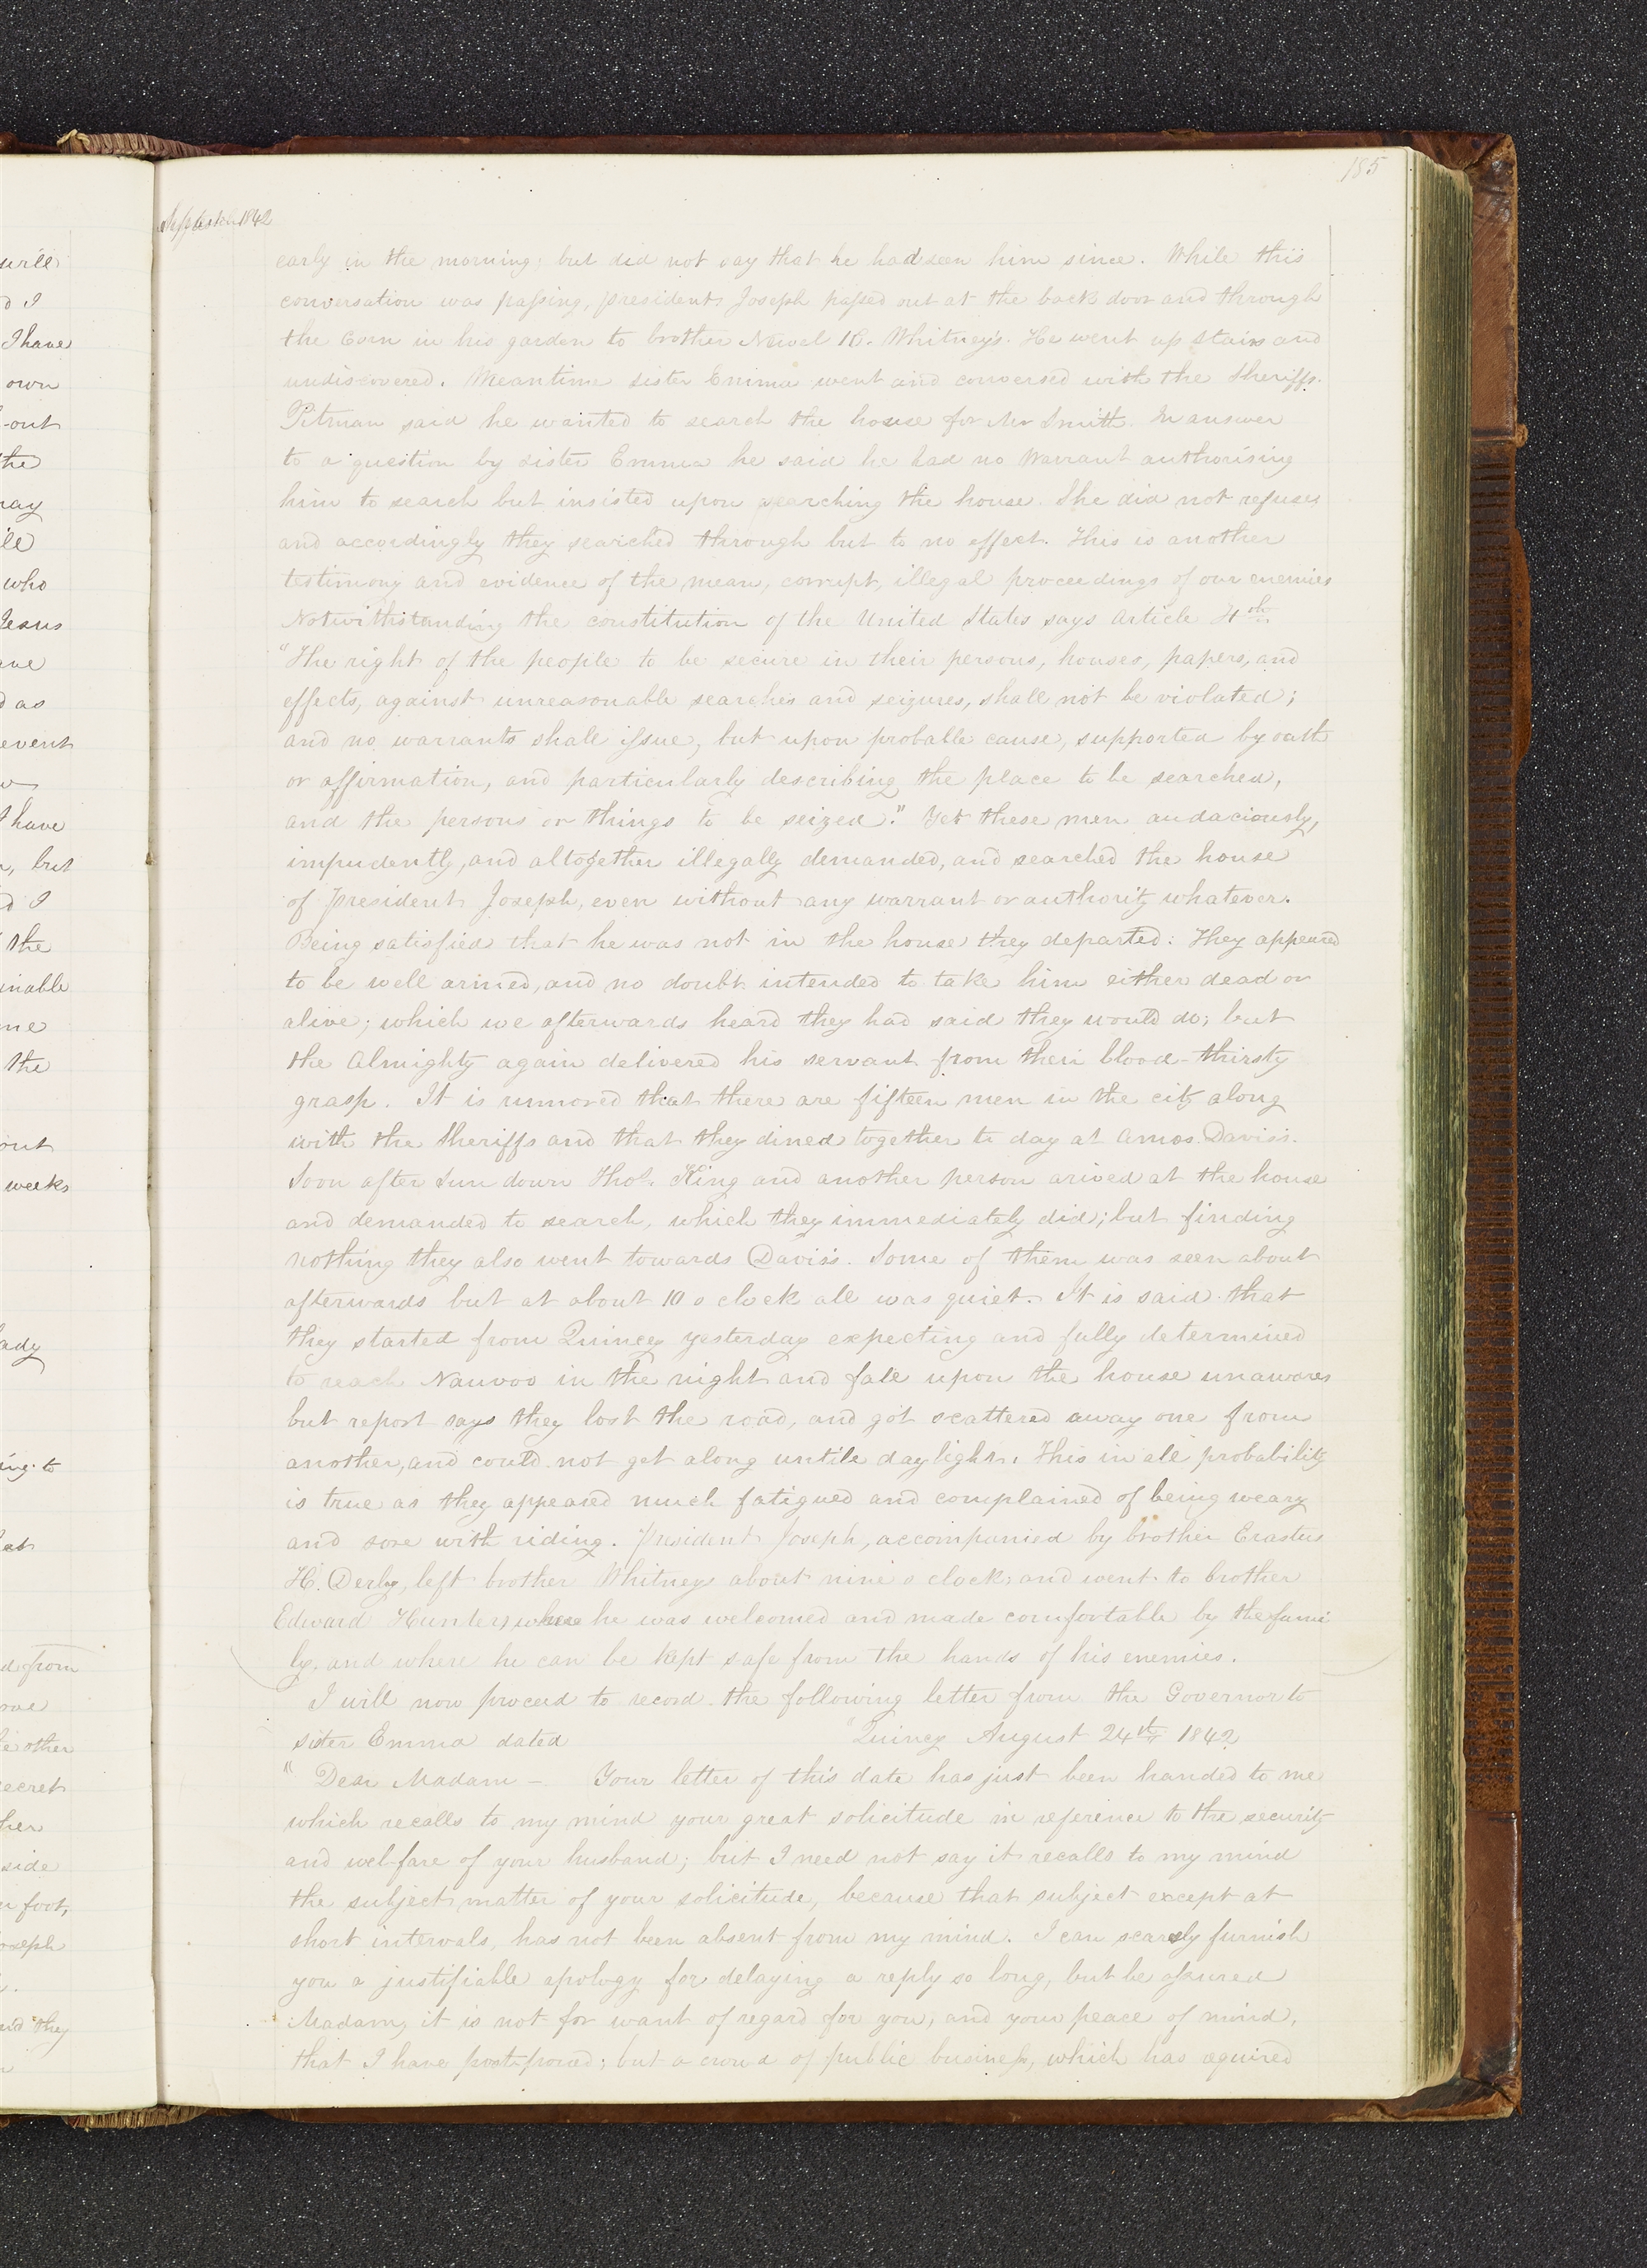 185
September 1842
early in the morning; but did not say that he had seen him since. While this
conversation was passing, president Joseph passed out at the back door and through
the Corn in his garden to brother Newel K. Whitney's. He went up stairs and
undiscovered. Meantime sister Emma went and conversed with the Sheriffs.
Pitman said he wanted to search the house for Mr Smith. In answer
to a question by sister Emma he said he had no Warrant authorising
him to search but insisted upon searching the house. She did not refuse
and accordingly they searched through but to no effect. This is another
testimony and evidence of the mean, corrupt, illegal proceedings of our enemies
Notwithstanding the constitution of the United States says Article 4th
"The right of the people to be secure in their persons, houses, papers, and
effects, against unreasonable searches and seizures, shall not be violated;
and no warrants shall issue, but upon probable cause, supported by oath
or affirmation, and particularly describing the place to be searched,
and the persons or things to be seized." Yet these men audaciously,
impudently, and altogether illegally demanded, and searched the house
of president Joseph, even without any warrant or authority whatever.
Being satisfied that he was not in the house they departed: They appeared
to be well armed, and no doubt intended to take him either dead or
alive; which we afterwards heard they had said they would do; but
the Almighty again delivered his servant from their blood-thirsty
grasp. It is rumored that there are fifteen men in the city along
with the Sheriffs and that they dined together to day at Amos Davis's.
Soon after Sun down Thos. King and another person arived at the house
and demanded to search, which they immediately did; but finding
nothing they also went towards Davis's. Some of them was seen about
afterwards but at about 10 o clock all was quiet. It is said that
they started from Quincy yesterday expecting and fully determined
to reach Nauvoo in the night and fall upon the house unawares
but report says they lost the road, and got scattered away one from
another, and could not get along untill daylight. This in all probability
is true as they appeared much fatigued and complained of being weary
and sore with riding. President Joseph, accompanied by brother Erastus
H. Derby, left brother Whitneys about nine o clock, and went to brother
Edward Hunters where he was welcomed and made comfortable by the fami
ly, and where he can be kept safe from the hands of his enemies.
I will now proceed to record the following letter from the Governor to
sister Emma dated "Quincy August 24th 1842
"Dear Madam — Your letter of this date has just been handed to me
which recalls to my mind your great solicitude in reference to the security
and wel-fare of your husband; but I need not say it recalls to my mind
the subject matter of your solicitude, because that subject except at
short intervals, has not been absent from my mind. I can scarcely furnish
you a justifiable apology for delaying a reply so long, but be assured
Madam, it is not for want of regard for you, and your peace of mind,
that I have postponed; but a crowd of public business, which has required